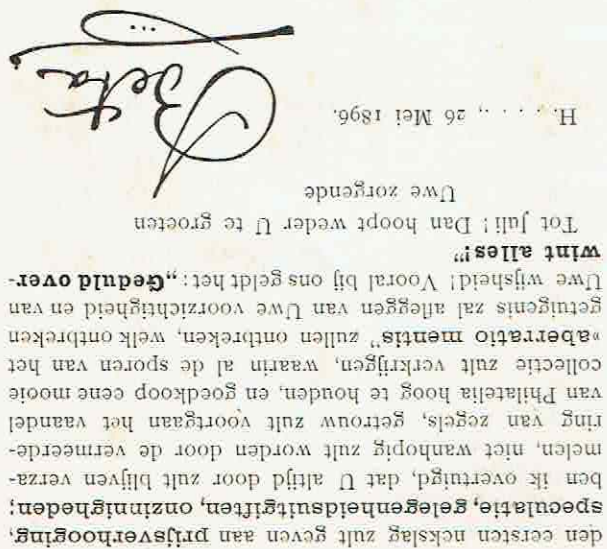 den eersten nekslag zult geven aan prijsverhooging,
speculatie, gelegenheidsuitgiften, onzinnigheden;
ben ik overtuigd, dat U altijd door zult blijven verza-
melen, niet wanhopig zult worden door de vermeerde-
ring van zegels, getrouw zult voortgaan het vaandel
van Philatelia hoog te houden, en goedkoop eene mooie
collectie zult verkrijgen, waarin al de sporen van het
„aberratio mentis” zullen ontbreken, welk ontbreken
getuigenis zal afleggen van Uwe voorzichtigheid en van
Uwe wijsheid! Vooral bij ons geldt het: „Geduld over-
wint alles!”
Tot juli! Dan hoopt weder U te groeten
Uwe zorgende
H. . . . ., 26 Mei 1896.
Beta